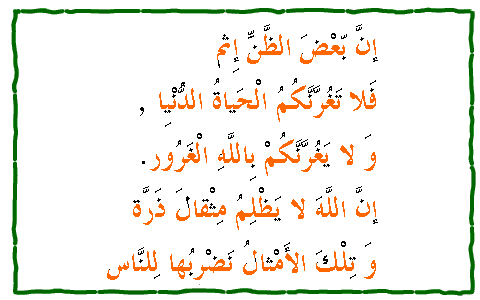 إنَّ بَّعْضَ الظَّنِّ إِثم
فَلا تَغُرَّنَّكُمُ الْحَياةُ الدُّنْيا ,
وَ لا يَغُرَّنَّكُمْ بِاللَّهِ الْغَرُور.
إنَّ اللَّهَ لا يَظْلِمُ مِثْقالَ ذَرَّة
وَ تِلْكَ الأَمْثالُ نَضْرِبُها لِلنَّاس